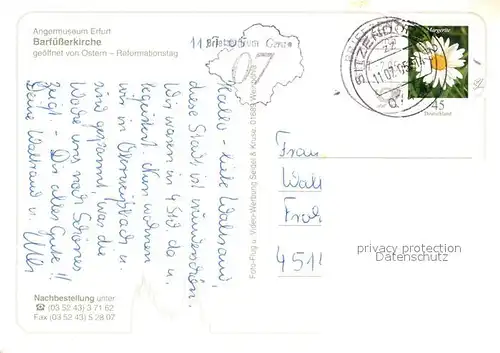 Angermuseum Erfurt
Barfüßerkirche
geöffnet von Ostern – Reformationstag
Hallo – liebe Waltraud,
diese Stadt ist wunderschön.
Wir waren in 4 Std da u.
begeistert. Nun wohnen
wir in Oberweißbach u.
sind gespannt, was die
Woche uns noch Schönes
zeigt – Dir alles Gute!!
Deine Waltraud u.
Nachbestellung unter
☎ (03 52 43) 3 71 62
Fax (03 52 43) 5 28 07
Foto-Flug u. Video-Werbung Seidel & Krause, 01689 Weinböhla
07
SITZENDORF
11.07.05
Margerite
45
Deutschland
Frau
Walt
451
privacy protection
Datenschutz